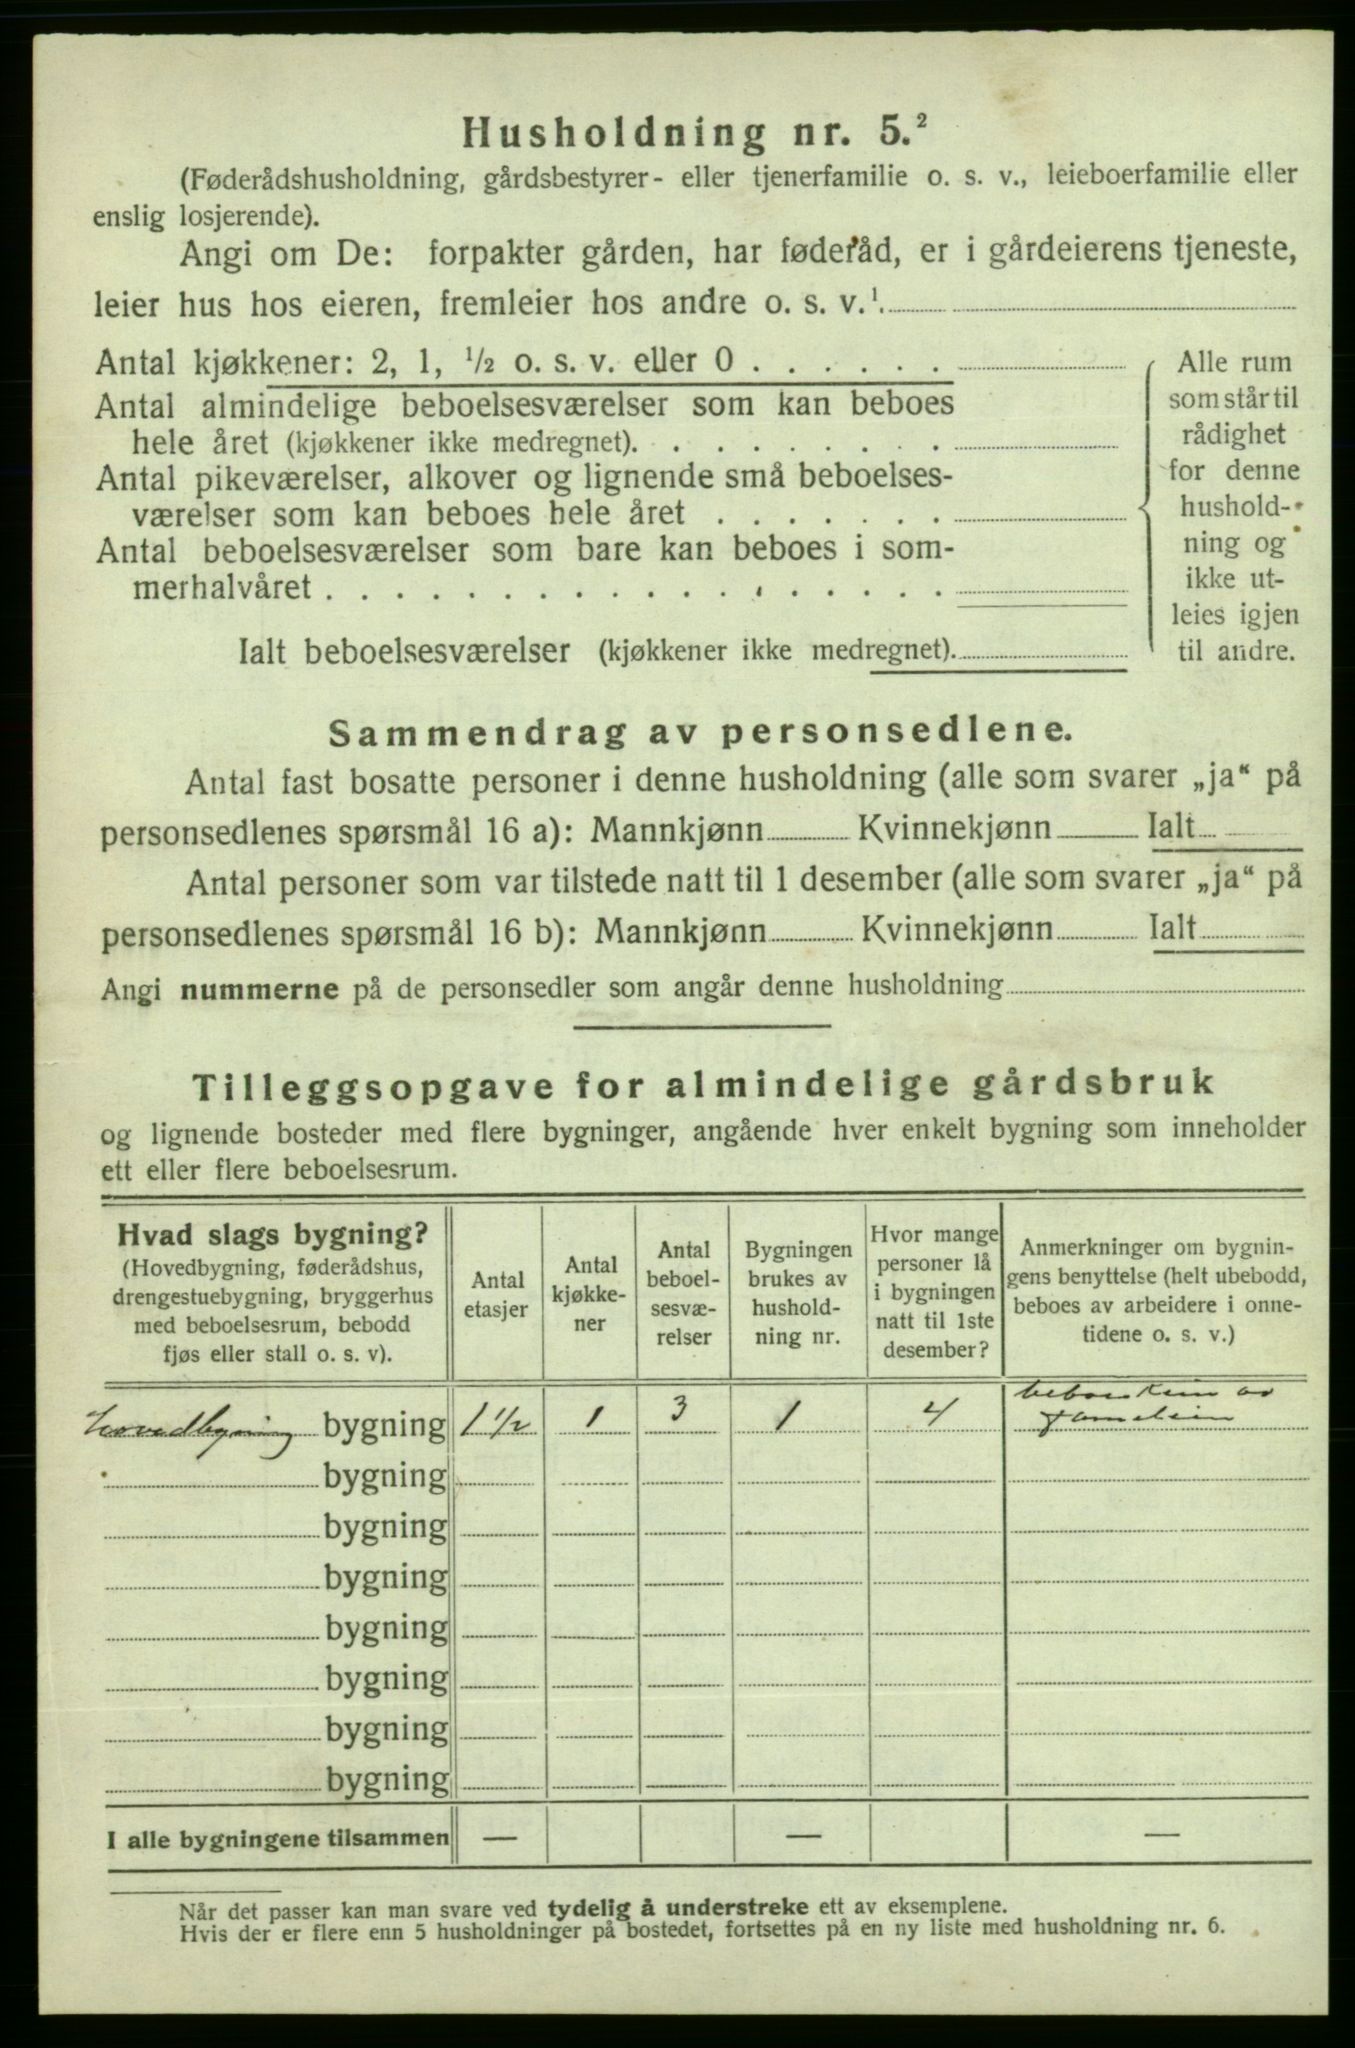 Husholdning nr. 5.²
(Føderådshusholdning, gårdsbestyrer- eller tjenerfamilie o. s. v., leieboerfamilie eller
enslig losjerende).
Angi om De: forpakter gården, har føderåd, er i gårdeierens tjeneste,
leier hus hos eieren, fremleier hos andre o. s. v.¹.
Antal kjøkkener: 2, 1, ½ o. s. v. eller 0 . . . . . .
Antal almindelige beboelsesværelser som kan beboes
hele året (kjøkkener ikke medregnet). . . . . . . .
Antal pikeværelser, alkover og lignende små beboelses-
værelser som kan beboes hele året . . . . . . .
Antal beboelsesværelser som bare kan beboes i som-
merhalvåret . . . . . . . . . . . . . . . . . .
Ialt beboelsesværelser (kjøkkener ikke medregnet).
Alle rum
som står til
rådighet
for denne
hushold-
ning og
ikke ut-
leies igjen
til andre.
Sammendrag av personsedlene.
Antal fast bosatte personer i denne husholdning (alle som svarer „ja“ på
personsedlenes spørsmål 16 a): Mannkjønn Kvinnekjønn Ialt
Antal personer som var tilstede natt til 1 desember (alle som svarer „ja“ på
personsedlenes spørsmål 16 b): Mannkjønn Kvinnekjønn Ialt
Angi nummerne på de personsedler som angår denne husholdning
Tilleggsopgave for almindelige gårdsbruk
og lignende bosteder med flere bygninger, angående hver enkelt bygning som inneholder
ett eller flere beboelsesrum.
Hvad slags bygning?
(Hovedbygning, føderådshus,
drengestuebygning, bryggerhus
med beboelsesrum, bebodd
fjøs eller stall o. s. v).
Antal
etasjer
Antal
kjøkke-
ner
Antal
beboel-
sesvæ-
relser
Bygningen
brukes av
hushold-
ning nr.
Hvor mange
personer lå
i bygningen
natt til 1ste
desember?
Anmerkninger om bygnin-
gens benyttelse (helt ubebodd,
beboes av arbeidere i onne-
tidene o. s. v.)
Hovedbygning bygning 1 ½ 1 3 1 4
av
familien
bygning
bygning
bygning
bygning
bygning
bygning
bygning
I alle bygningene tilsammen — — —
Når det passer kan man svare ved tydelig å understreke ett av eksemplene.
Hvis der er flere enn 5 husholdninger på bostedet, fortsettes på en ny liste med husholdning nr. 6.